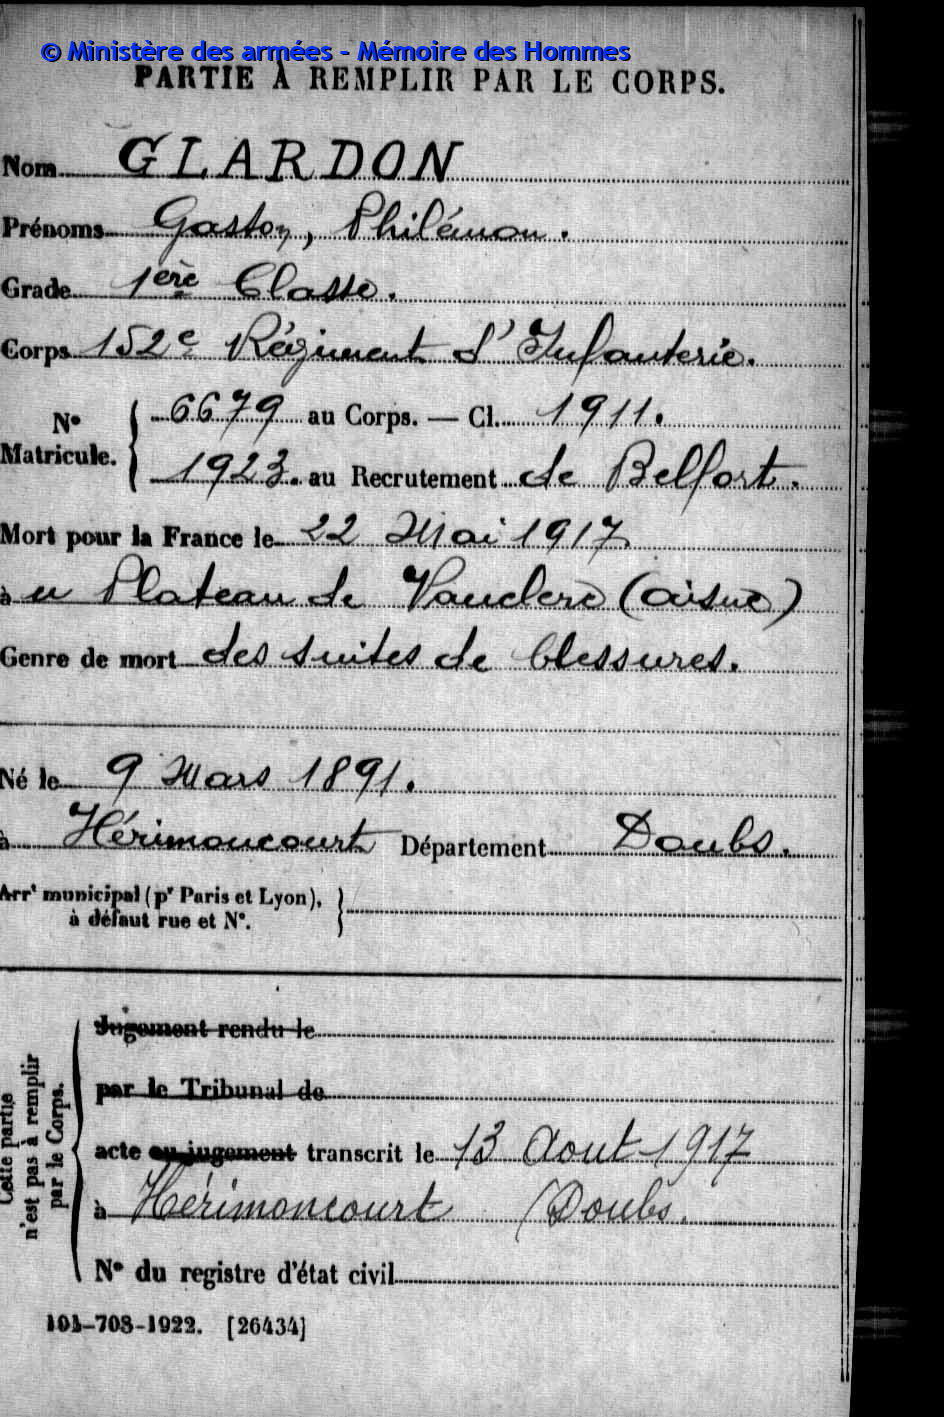 © Ministère des armées - Mémoire des Hommes
PARTIE À REMPLIR PAR LE CORPS.
Nom GLARDON
Prénoms Gaston, Philémon.
Grade 1ère Classe.
Corps 152e Régiment d'Infanterie.
N° Matricule. { 6679 au Corps. — Cl. 1911.
1923. au Recrutement de Belfort.
Mort pour la France le 22 Mai 1917
à u Plateau de Vauclerc (aisne)
Genre de mort des suites de blessures.
Né le 9 Mars 1891.
à Hérimoncourt Département Doubs.
Arrt municipal (pr Paris et Lyon),
à défaut rue et N°.
Cette partie
n'est pas à remplir
par le Corps.
Jugement rendu le
par le Tribunal de
acte ou jugement transcrit le 13 Aout 1917
à Hérimoncourt (Doubs.
N° du registre d'état civil
101-708-1922. [26434]